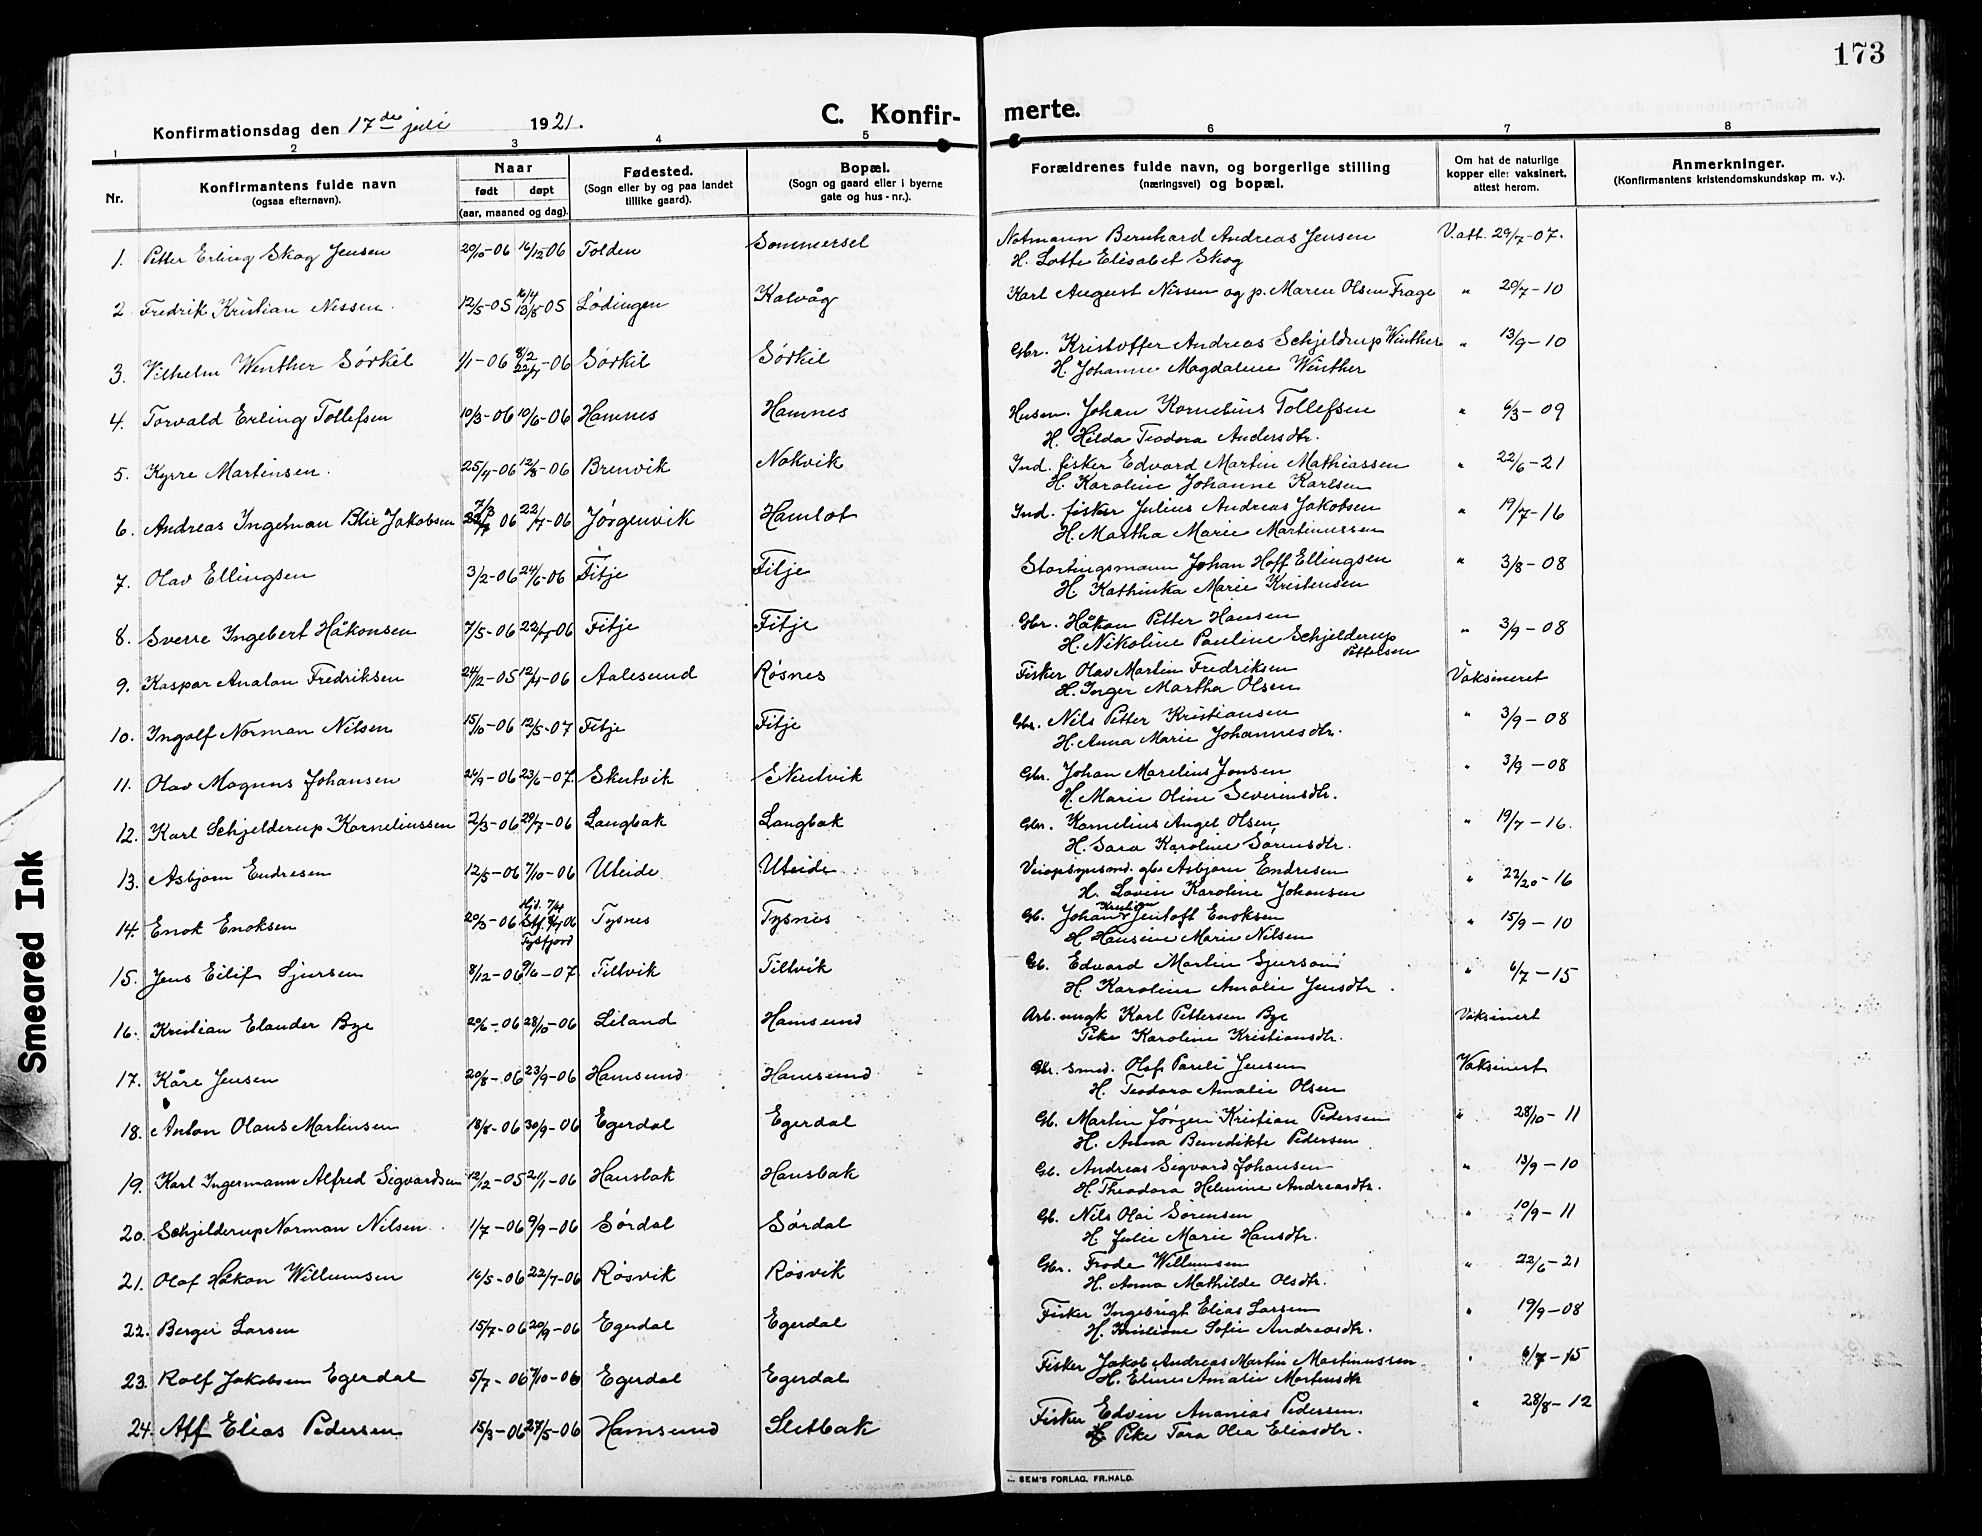 173
Konfirmationsdag den 17de juli 1921.
C. Konfirmerte.
1 2 3 4 5 6 7 8
Nr.
Konfirmantens fulde navn
(ogsaa efternavn).
Naar
født døpt
(aar, maaned og dag).
Fødested.
(Sogn eller by og paa landet
tillike gaard).
Bopæl.
(Sogn og gaard eller i byerne
gate og hus-nr.).
Forældrenes fulde navn, og borgerlige stilling
(næringsvei) og bopæl.
Om hat de naturlige
kopper eller vaksinert,
attest herom.
Anmerkninger.
(Konfirmantens kristendomskundskap m. v.).
1. Petter Erling Skog Jensen 20/10-06 16/12 06 Tolden Sommersel Notmann Bernhard Andreas Jensen V.att. 29/7-07.
H. Lotte Elisabet Skog
2 Fredrik Kristian Nissen. 12/5-05 16/4 13/8-05 Lødingen Kalvåg Karl August Nissen og p. Maren Olsen Frage " 20/7-10
3. Vilhelm Winther Sørkil 1/1-06 8/2 22/7-06 Sørkil Sørkil Gbr. Kristoffer Andreas Schjeldrup Winther " 13/9-10
H. Johanne Magdalene Winther
4. Torvald Erling Tollefsen 10/3-06 10/6-06 Hamnes Hamnes Husm. Johan Kornelius Tollefsen " 6/3-09
H. Hilda Teodora Andersdtr.
5. Kyrre Martinsen. 25/4-06 12/8-06 Brenvik Nokvik Ind. fisker Edvard Martin Mathiassen " 22/6-21
H. Karoline Johanne Karlsen
6. Andreas Ingelman Blix Jakobsen 7/3 06 22/7-06 Jørgenvik Hamlot Ind. fisker Julius Andreas Jakobsen " 19/7-16
H. Martha Marie Martinussen
7. Olav Ellingsen 3/2-06 24/6-06 Fitje Fitje Stortingsmann Johan Hoff Ellingsen " 3/8-08
H. Kathinka Marie Kristensen
8. Sverre Ingebert Håkonsen 7/5-06 22/7-06 Fitje Fitje Gbr. Håkon Petter Hansen " 3/9-08
H. Nikoline Pauline Schjelderup
Pettersen
9. Kaspar Analon Fredriksen 24/12-05 12/4-06 Aalesund Røsnes Fisker Olav Martin Fredriksen Vaksineret
H. Inger Martha Olsen
10. Ingolf Norman Nilsen 15/10-06 12/5-07 Fitje Fitje Gbr. Nils Petter Kristiansen " 3/9-08
H. Anna Marie Johannesdtr.
11. Olav Magnus Johansen 26/9-06 23/6-07. Skutvik Skutvik Gbr. Johan Marelius Jonsen " 3/9-08
H. Marie Oline Severinsdtr.
12. Karl Schjelderup Kornelinssen 2/3-06 29/7-06 Langbak Langbak Gbr. Kornelius Angel Olsen " 19/7-16.
H. Sara Karoline Sørensdtr.
13. Asbjørn Endresen 12/5-06 7/10-06 Uteide Uteide Veiopsynsmd. gbr Asbjørn Endresen " 22/20-16
H. Lovise Karoline Johansen
14. Enok Enoksen 20/3-06 Hjd. 7/4 Stf. 8/7 06 Tysfjord Tysnes Tysnes Gb. Johan Kristian Jentoft Enoksen " 15/9-10
H Hansine Marie Nilsen
15. Jens Eilif Sjursen 8/12-06 9/6-07 Tiltvik Tiltvik Gb. Edvard Martin Sjurson " 6/7-15
H. Karoline Amalie Jensdtr.
16. Kristian Elander Bye 20/6-06 28/10-06 Liland Hamsund Arb. ungk Karl Pettersen Bye Vaksinert
Pike Karoline Kristiansdtr.
17. Kåre Jensen 20/8-06 23/9-06 Hamsund Hamsund Gbr. smed. Olaf Pareli Jensen Vaksinert
H. Teodora Amalie Olsen
18. Anton Olaus Martinsen 18/8-06 30/9-06 Egerdal Egerdal Gb. Martin Jørgen Kristian Pedersen " 28/10-11
H. Anna Benedikte Pedersen
19. Karl Ingermann Alfred Sigvardsen 12/12-05 21/1-06 Hansbak Hansbak Gb. Andreas Sigvard Johansen " 13/9-10
H. Theodora Helmine Andreasdtr.
20. Schjelderup Norman Nilsen. 1/7-06 9/9-06 Sørdal Sørdal Gb. Nils Olai Sørensen " 10/9-11
H Julie Marie Hansdtr.
21. Olaf Håkon Willumsen 16/5-06 22/7-06 Røsvik Røsvik Gbr. Frode Willumsen " 22/6-21
H. Anna Mathilde Olsdtr.
22. Berger Larsen 15/7-06 20/9-06 Egerdal Egerdal Fisker Ingebrigt Elias Larsen " 19/9-08
H. Kristiane Sofie Andreasdtr.
23. Rolf Jakobsen Egerdal 5/7-06 7/10-06 Egerdal Egerdal Fisker Jakob Andreas Martin Martinussen " 6/7-15
H. Eline Amalie Mortensdtr
24. Alf Elias Pedersen 15/3-06 27/5-06 Hamsund Sletbak Fisker Edvin Ananias Pedersen. " 28/8-12
Pike Tora Olea Eliasdtr.
SEM'S FORLAG, FR.HALD.
Smeared Ink